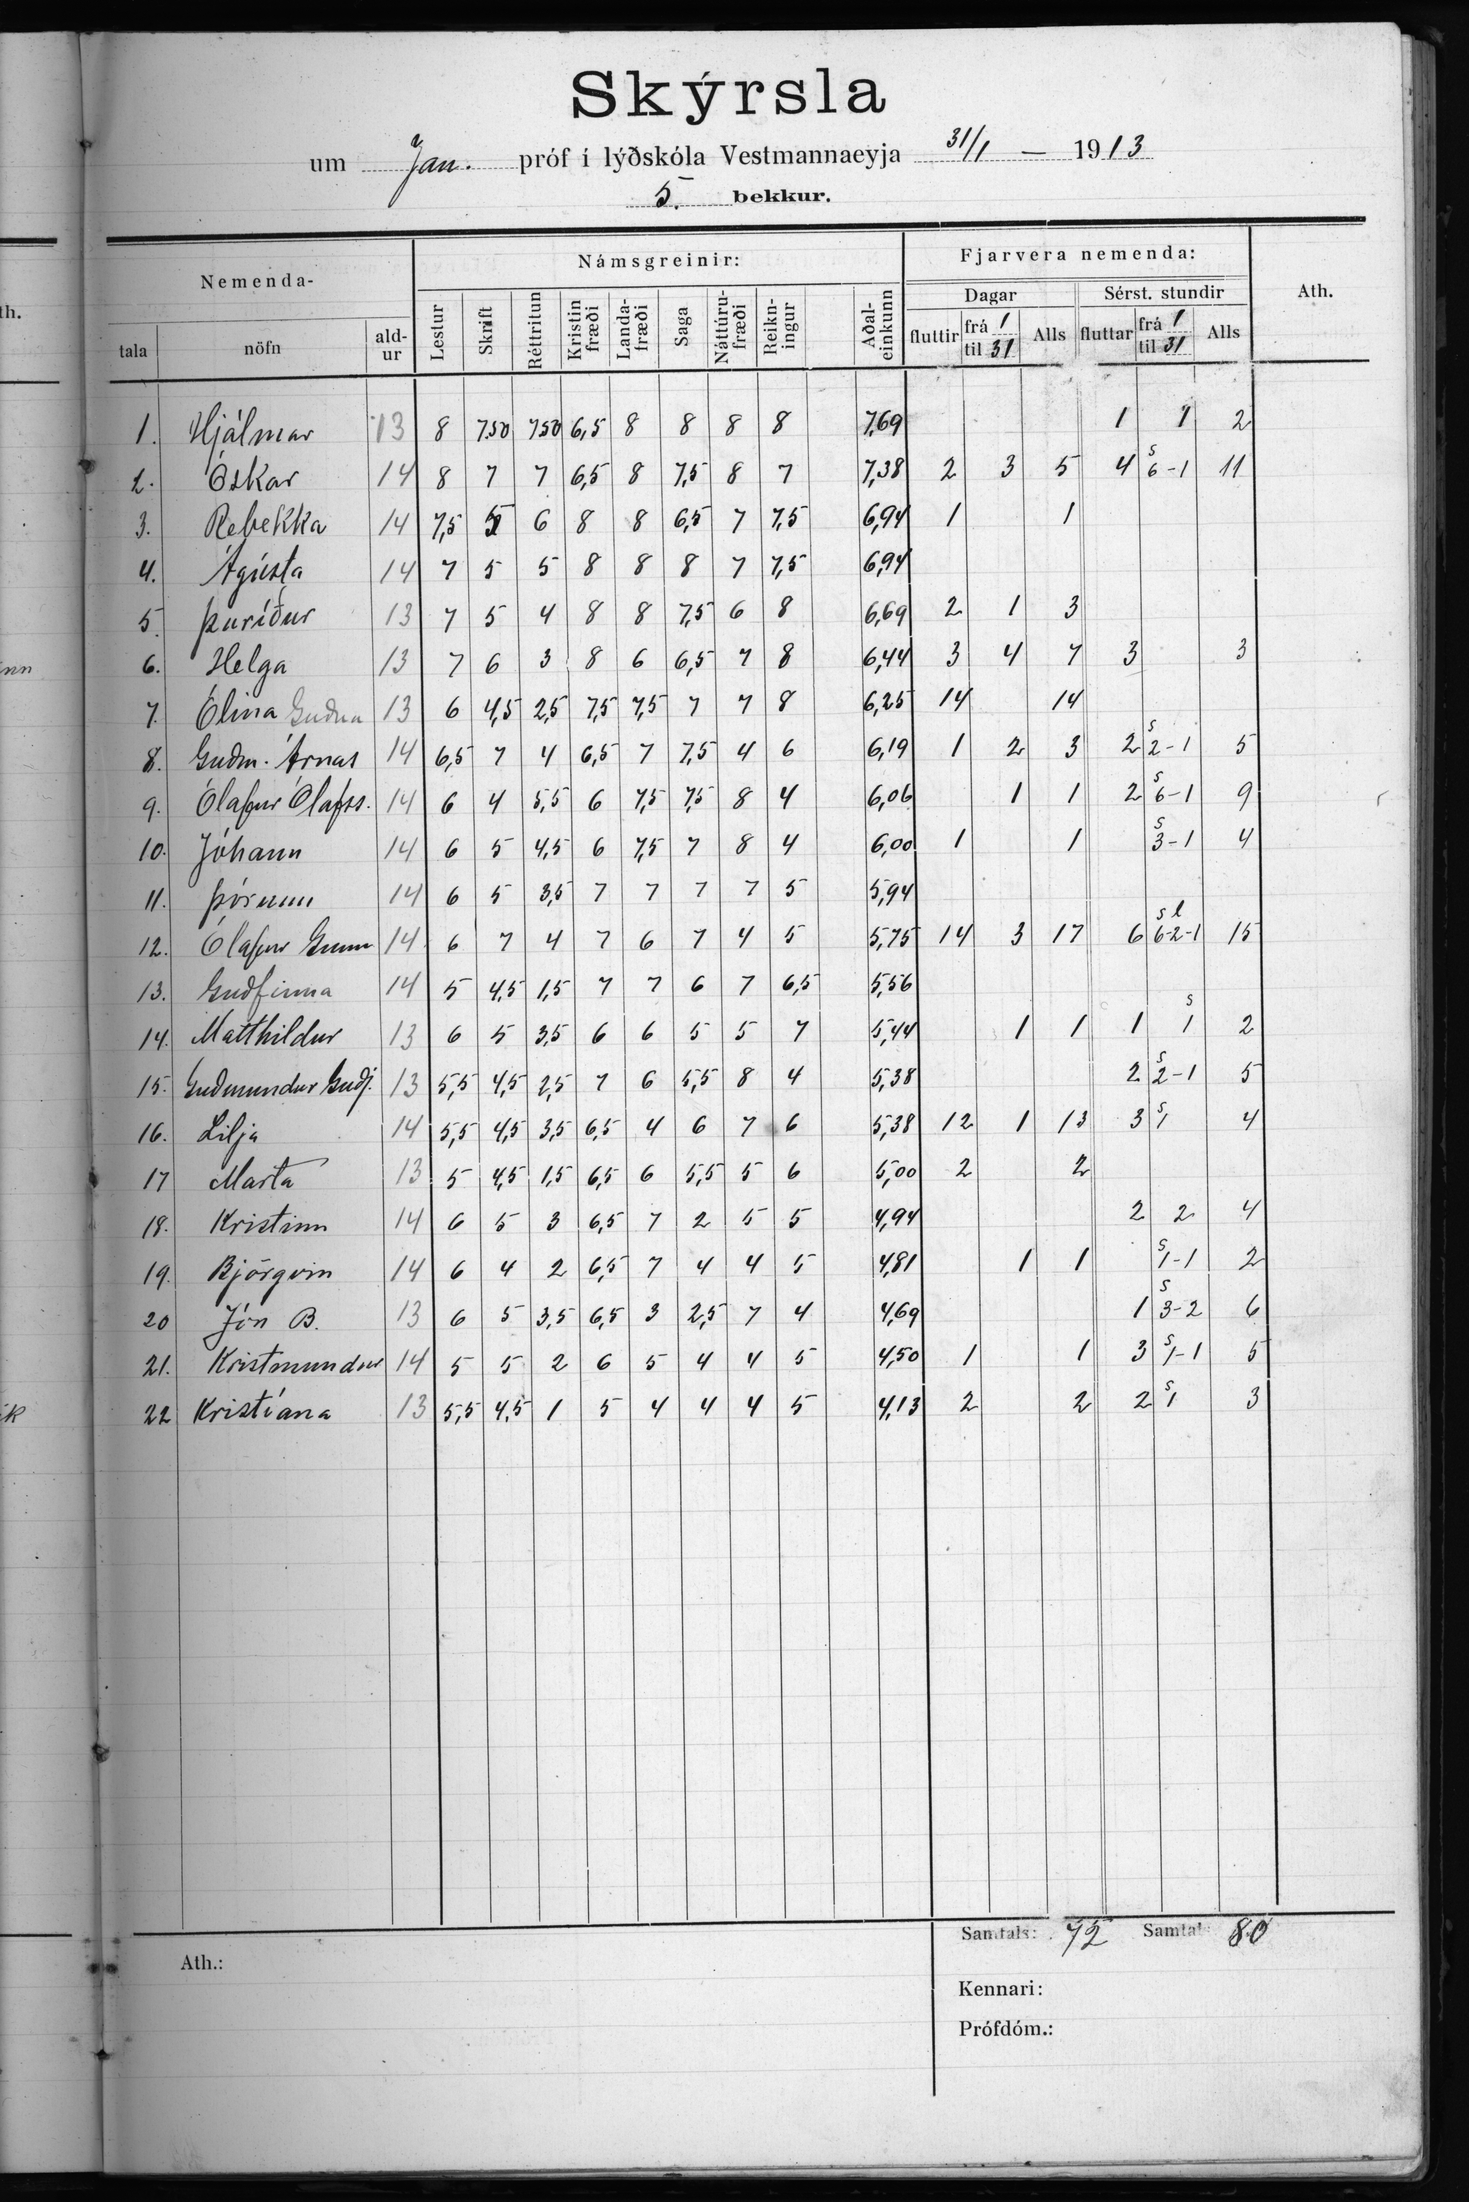 Skýrsla
um Jan. próf í lýðskóla Vestmannaeyja 31/1 — 1913
5. bekkur.
Nemenda- Námsgreinir: Fjarvera nemenda: Ath.
tala nöfn ald-ur Lestur Skrift Réttritun Kristin fræði Landa-fræði Saga Náttúru-fræði Reikn-ingur Aðal-einkunn Dagar fluttir frá 1 til 31 Alls Sérst. stundir fluttar frá 1 til 31 Alls
1. Hjálmar 13 8 7,50 7,50 6,5 8 8 8 8 7,69 1 1 2
2. Óskar 14 8 7 7 6,5 8 7,5 8 7 7,38 2 3 5 4 s 6-1 11
3. Rebekka 14 7,5 5 6 8 8 6,5 7 7,5 6,94 1 1
4. Ágústa 14 7 5 5 8 8 8 7 7,5 6,94
5. Þuríður 13 7 5 4 8 8 7,5 6 8 6,69 2 1 3
6. Helga 13 7 6 3 8 6 6,5 7 8 6,44 3 4 7 3 3
7. Ólína Guðna 13 6 4,5 2,5 7,5 7,5 7 7 8 6,25 14 14
8. Guðm. Árnas 14 6,5 7 4 6,5 7 7,5 4 6 6,19 1 2 3 2 s 2-1 5
9. Ólafur Ólafss. 14 6 4 5,5 6 7,5 7,5 8 4 6,06 1 1 2 s 6-1 9
10. Jóhann 14 6 5 4,5 6 7,5 7 8 4 6,00 1 1 s 3-1 4
11. Þórunn 14 6 5 3,5 7 7 7 7 5 5,94
12. Ólafur Gunn 14 6 7 4 7 6 7 4 5 5,75 14 3 17 6 s l 6-2-1 15
13. Guðfinna 14 5 4,5 1,5 7 7 6 7 6,5 5,56
14. Matthildur 13 6 5 3,5 6 6 5 5 7 5,44 1 1 1 s 1 2
15. Guðmundur Guðj. 13 5,5 4,5 2,5 7 6 5,5 8 4 5,38 2 s 2-1 5
16. Lilja 14 5,5 4,5 3,5 6,5 4 6 7 6 5,38 12 1 13 3 s 1 4
17 Marta 13 5 4,5 1,5 6,5 6 5,5 5 6 5,00 2 2
18. Kristinn 14 6 5 3 6,5 7 2 5 5 4,94 2 2 4
19. Björgvin 14 6 4 2 6,5 7 4 4 5 4,81 1 1 s 1-1 2
20 Jón B. 13 6 5 3,5 6,5 3 2,5 7 4 4,69 1 s 3-2 6
21. Kristmundur 14 5 5 2 6 5 4 4 5 4,50 1 1 3 s 1-1 5
22 Kristíana 13 5,5 4,5 1 5 4 4 4 5 4,13 2 2 2 s 1 3
Samtals: 72 Samtals 80
Ath.:
Kennari:
Prófdóm.: